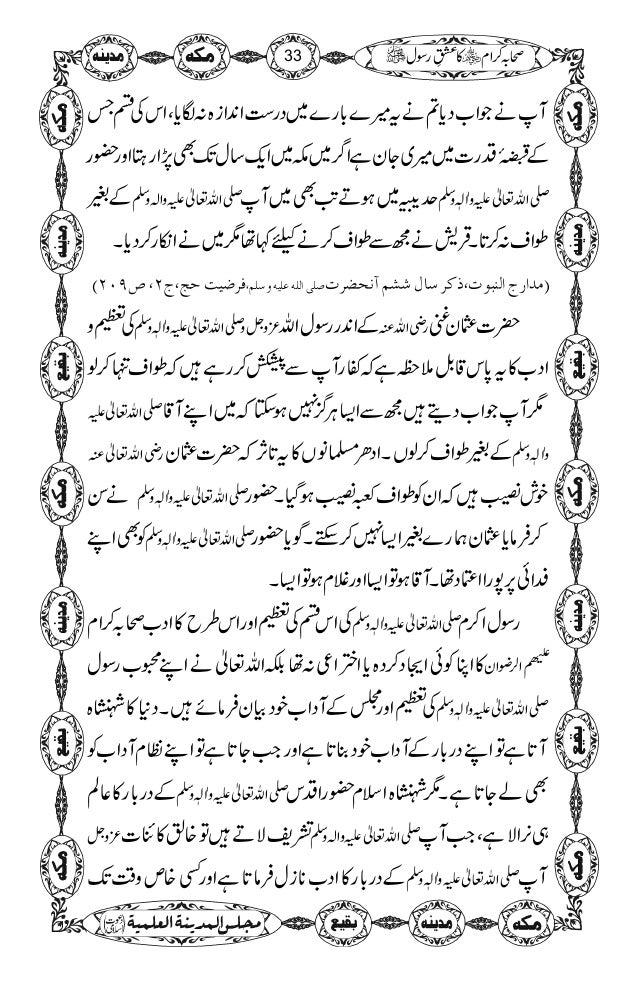 صحابہ کرام رضی اللہ عنہم کا عشق رسول ﷺ
33
مکہ
مدینہ
آپ نے جواب دیا تم نے یہ میرے بارے میں درست اندازہ نہ لگایا، اس کی قسم جس
کے قبضۂ قدرت میں میری جان ہے اگر میں مکہ میں ایک سال تک بھی پڑا رہتا اور حضور
صلی اللہ تعالیٰ علیہ والہٖ وسلم حدیبیہ میں ہوتے تب بھی میں آپ صلی اللہ تعالیٰ علیہ والہ وسلم کے بغیر
طواف نہ کرتا۔ قریش نے مجھ سے طواف کرنے کیلئے کہا تھا مگر میں نے انکار کر دیا۔
(مدارج النبوت،ذکر سال ششم آنحضرت صلی اللہ علیہ و سلم،فرضیت حج،ج۲،ص۲۰۹)
حضرت عثمان غنی رضی اللہ عنہ کے اندر رسول اللہ عزوجل و صلی اللہ تعالیٰ علیہ والہٖ وسلم کی تعظیم و
ادب کا یہ پاس قابل ملاحظہ ہے کہ کفار آپ سے پیشکش کر رہے ہیں کہ طواف تنہا کر لو
مگر آپ جواب دیتے ہیں مجھ سے ایسا ہرگز نہیں ہو سکتا کہ میں اپنے آقا صلی اللہ تعالیٰ علیہ
والہٖ وسلم کے بغیر طواف کرلوں ۔ ادھر مسلمانوں کا یہ تاثر کہ حضرت عثمان رضی اللہ تعالیٰ عنہ
خوش نصیب ہیں کہ ان کو طواف کعبہ نصیب ہو گیا۔ حضور صلی اللہ تعالیٰ علیہ والہٖ وسلم نے سن
کر فرمایا عثمان ہمارے بغیر ایسا نہیں کر سکتے ۔ گویا حضور صلی اللہ تعالیٰ علیہ والہٖ وسلم کو بھی اپنے
فدائی پر پورا اعتماد تھا۔ آقا ہو تو ایسا اور غلام ہو تو ایسا۔
رسول اکرم صلی اللہ تعالیٰ علیہ والہٖ وسلم کی اس قسم کی تعظیم اور اس طرح کا ادب صحابہ کرام
علیھم الرضوان کا اپنا کوئی ایجاد کردہ یا اختراعی نہ تھا بلکہ اللہ تعالیٰ نے اپنے محبوب رسول
صلی اللہ تعالیٰ علیہ والہٖ وسلم کی تعظیم اور مجلس کے آداب خود بیان فرمائے ہیں۔ دنیا کا شہنشاہ
آتا ہے تو اپنے دربار کے آداب خود بناتا ہے اور جب جاتا ہے تو اپنے نظام آداب کو
بھی لے جاتا ہے۔ مگر شہنشاہ اسلام حضور اقدس صلی اللہ تعالیٰ علیہ والہٖ وسلم کے دربار کا عالم
ہی نرالا ہے، جب آپ صلی اللہ تعالیٰ علیہ والہ وسلم تشریف لاتے ہیں تو خالق کائنات عزوجل
آپ صلی اللہ تعالیٰ علیہ والہٖ وسلم کے دربار کا ادب نازل فرماتا ہے اور کسی خاص وقت تک
مکہ
مدینہ
بقیع
مکہ
مدینہ
بقیع
مکہ
مکہ
مدینہ
بقیع
مکہ
مدینہ
بقیع
مکہ
مکہ
مدینہ
بقیع
مجلس المدینة العلمیة (دعوت اسلامی)